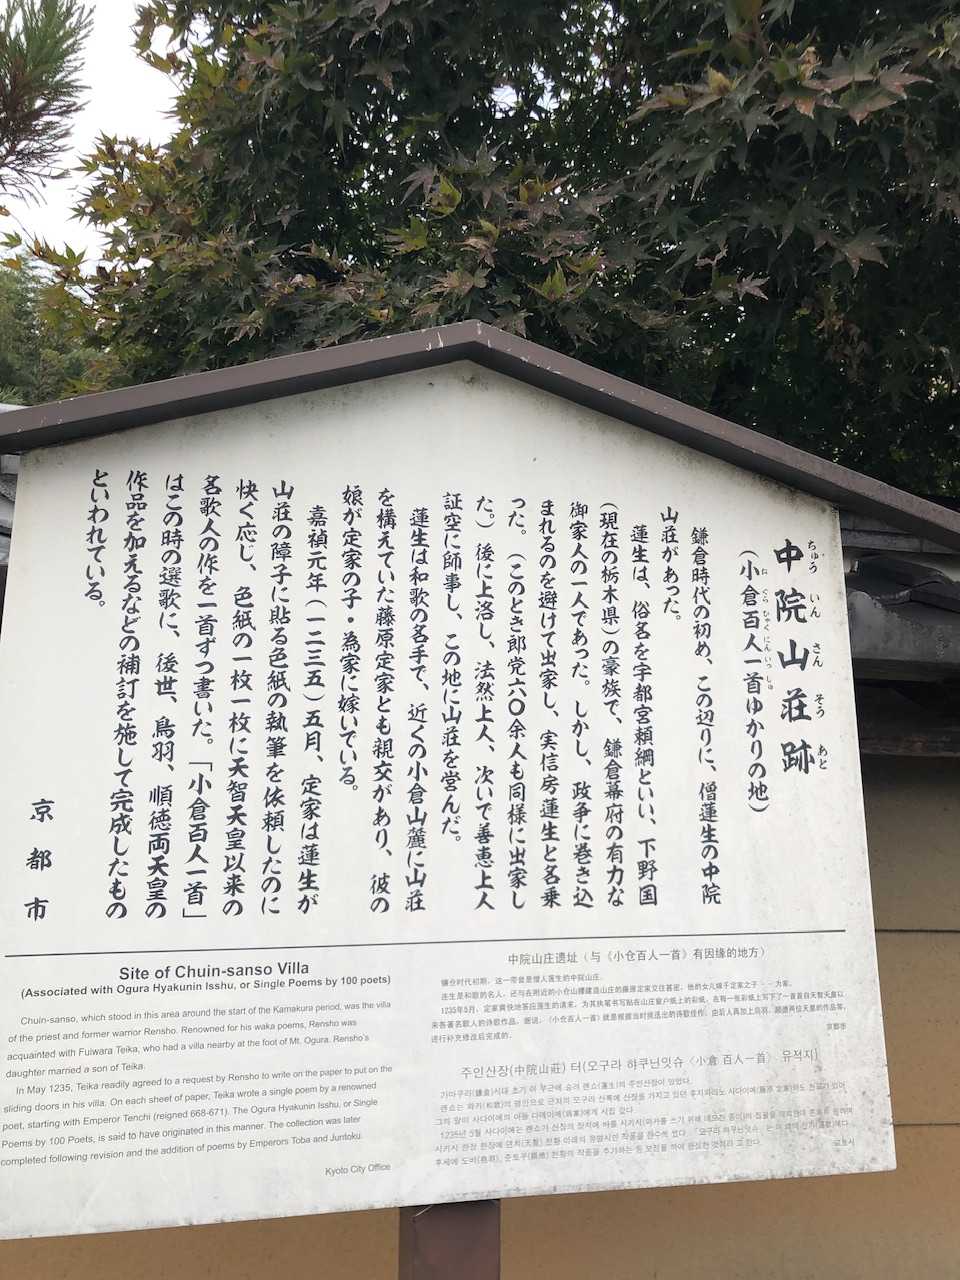 中院山荘跡
ちゅういんさんそうあと
(小倉百人一首ゆかりの地)
おぐらひゃくにんいっしゅ
鎌倉時代の初め、この辺りに、僧蓮生の中院
山荘があった。
蓮生は、俗名を宇都宮頼綱といい、下野国
(現在の栃木県)の豪族で、鎌倉幕府の有力な
御家人の一人であった。しかし、政争に巻き込
まれるのを避けて出家し、実信房蓮生と名乗
った。(このとき郎党六〇余人も同様に出家し
た。)後に上洛し、法然上人、次いで善恵上人
証空に師事し、この地に山荘を営んだ。
蓮生は和歌の名手で、近くの小倉山麓に山荘
を構えていた藤原定家とも親交があり、彼の
娘が定家の子・為家に嫁いでいる。
嘉禎元年(一二三五)五月、定家は蓮生が
山荘の障子に貼る色紙の執筆を依頼したのに
快く応じ、色紙の一枚一枚に天智天皇以来の
名歌人の作を一首ずつ書いた。「小倉百人一首」
はこの時の選歌に、後世、鳥羽、順徳両天皇の
作品を加えるなどの補訂を施して完成したもの
といわれている。
京都市
Site of Chuin-sanso Villa
(Associated with Ogura Hyakunin Isshu, or Single Poems by 100 poets)
Chuin-sanso, which stood in this area around the start of the Kamakura period, was the villa
of the priest and former warrior Rensho. Renowned for his waka poems, Rensho was
acquainted with Fuiwara Teika, who had a villa nearby at the foot of Mt. Ogura. Rensho's
daughter married a son of Teika.
In May 1235, Teika readily agreed to a request by Rensho to write on the paper to put on the
sliding doors in his villa. On each sheet of paper, Teika wrote a single poem by a renowned
poet, starting with Emperor Tenchi (reigned 668-671). The Ogura Hyakunin Isshu, or Single
Poems by 100 Poets, is said to have originated in this manner. The collection was later
completed following revision and the addition of poems by Emperors Toba and Juntoku.
Kyoto City Office
中院山庄遗址(与《小仓百人一首》有因缘的地方)
镰仓时代初期，这一带曾是僧人莲生的中院山庄。
莲生是和歌的名人，还与在附近的小仓山麓建造山庄的藤原定家交往甚密，他的女儿嫁于定家之子・一为家。
1235年5月，定家爽快地答应莲生的请求，为其执笔书写贴在山庄窗户纸上的彩纸，在每一张彩纸上写下了一首首自天智天皇以
来各著名歌人的诗歌作品。据说，《小仓百人一首》就是根据当时挑选出的诗歌佳作，由后人再加上鸟羽、顺德两位天皇的作品等，
进行补充修改后完成的。
京都市
주인산장(中院山莊) 터(오구라 햐쿠닌잇슈〈小倉 百人一首〉 유적지)